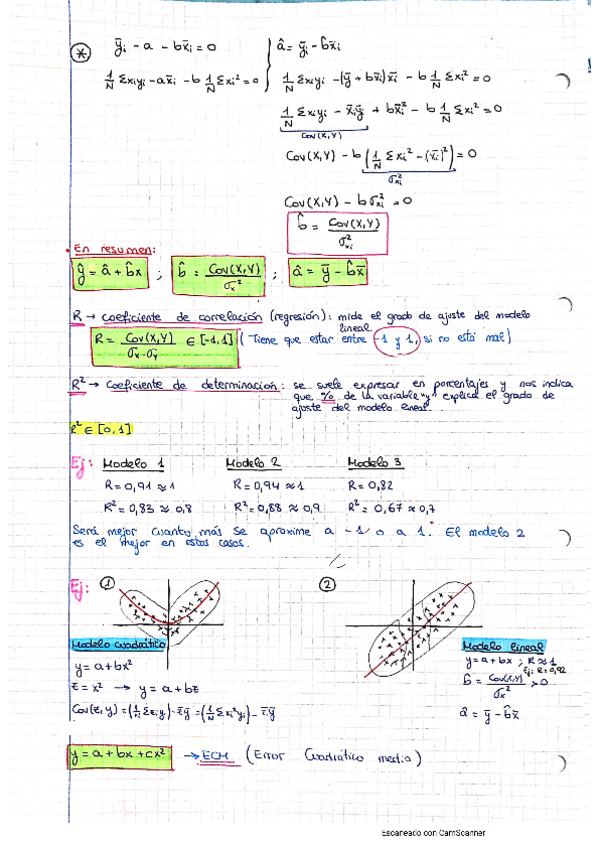 * ȳᵢ - a - bx̄ᵢ = 0
1/N Σxᵢyᵢ - ax̄ᵢ - b 1/N Σxᵢ² = 0
â = ȳᵢ - b̂x̄ᵢ
1/N Σxᵢyᵢ - (ȳ + bx̄ᵢ)x̄ᵢ - b 1/N Σxᵢ² = 0
1/N Σxᵢyᵢ - x̄ᵢȳ + bx̄ᵢ² - b 1/N Σxᵢ² = 0
Cov(X,Y)
Cov(X,Y) - b (1/N Σxᵢ² - (x̄ᵢ)²) = 0
σ²ₓᵢ
Cov(X,Y) - bσ²ₓᵢ = 0
b̂ = Cov(X,Y) / σ²ₓᵢ
En resumen:
ŷ = â + b̂x ; b̂ = Cov(X,Y) / σₓ² ; â = ȳ - b̂x̄
R → coeficiente de correlación (regresión): mide el grado de ajuste del modelo
lineal.
R = Cov(X,Y) / σₓ·σᵧ ∈ [-1,1] (Tiene que estar entre -1 y 1, si no está mal)
R² → Coeficiente de determinación: se suele expresar en porcentajes y nos indica
que % de la variable "y" explica el grado de
ajuste del modelo lineal.
R² ∈ [0,1]
Ej: Modelo 1 Modelo 2 Modelo 3
R = 0,91 ≈ 1 R = 0,94 ≈ 1 R = 0,82
R² = 0,83 ≈ 0,8 R² = 0,88 ≈ 0,9 R² = 0,67 ≈ 0,7
Será mejor cuanto más se aproxime a -1 o a 1. El modelo 2
es el mejor en estos casos.
Ej: 1 2
Modelo cuadrático
y = a + bx²
z = x² → y = a + bz
Cov(z,y) = (1/N Σzᵢyᵢ) - z̄ȳ = (1/N Σxᵢ²yᵢ) - z̄·ȳ
Modelo lineal
y = a + bx ; R ≈ 1
Ej: R = 0,92
b̂ = Cov(X,Y) / σₓ² > 0
â = ȳ - b̂x̄
y = a + bx + cx² → ECM (Error Cuadrático medio)
Escaneado con CamScanner